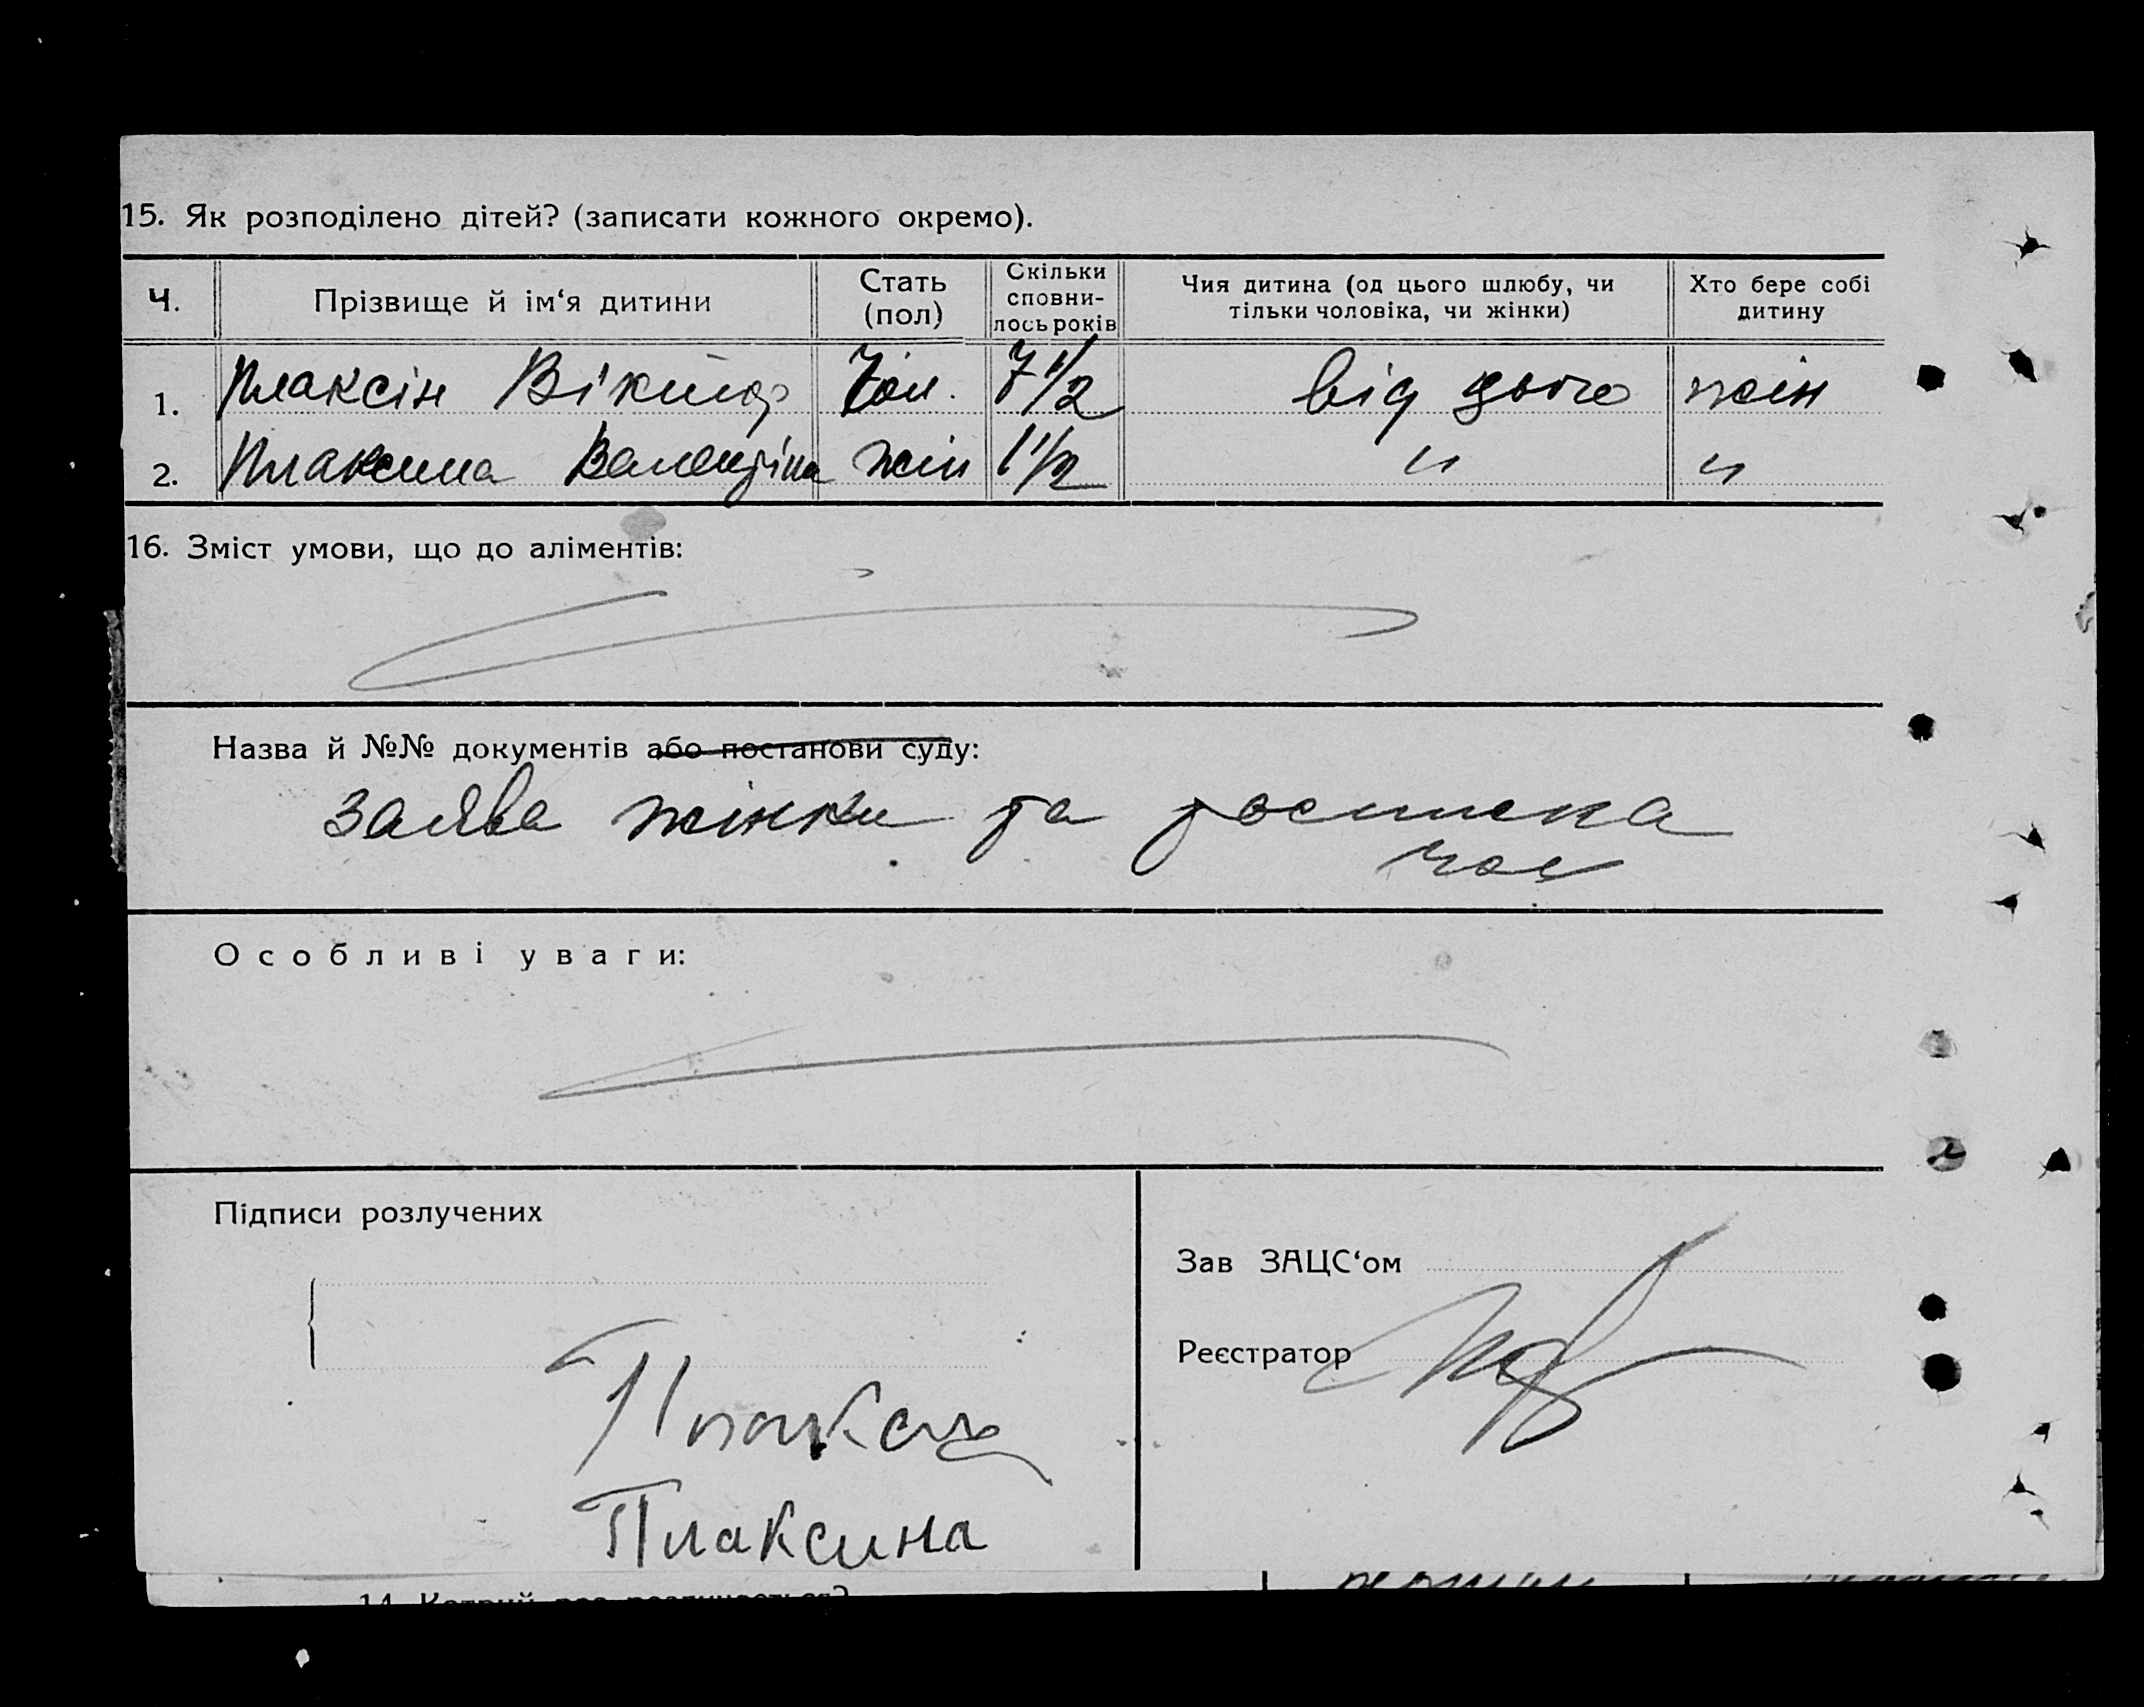 15. Як розподілено дітей? (записати кожного окремо).
Ч. Прізвище й ім‘я дитини Стать (пол) Скільки сповни-лось років Чия дитина (од цього шлюбу, чи тільки чоловіка, чи жінки) Хто бере собі дитину
1. Плаксін Віктор Чол. 7 1/2 від цього жін
2. Плаксина Валентіна жін 1 1/2 " "
16. Зміст умови, що до аліментів:
Назва й №№ документів або постанови суду:
заява жінки та росписка
чол
Особливі уваги:
Підписи розлучених
Зав ЗАЦС‘ом
Реєстратор
Плаксин
Плаксина
14. Котрий раз розлучається?